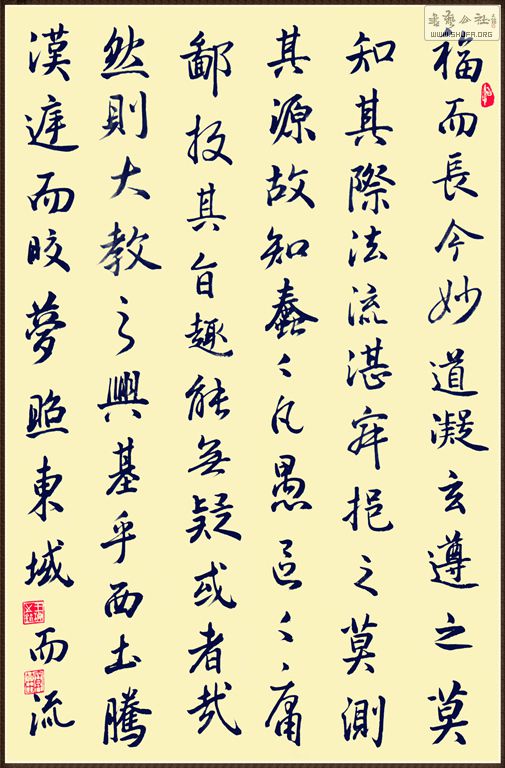 書藝公社
WWW.SHUFA.ORG
福而長今妙道凝玄遵之莫
知其際法流湛寂挹之莫測
其源故知蠢〻凡愚區〻庸
鄙投其旨趣能無疑或者哉
然則大教之興基乎西土騰
漢庭而皎夢照東域而流